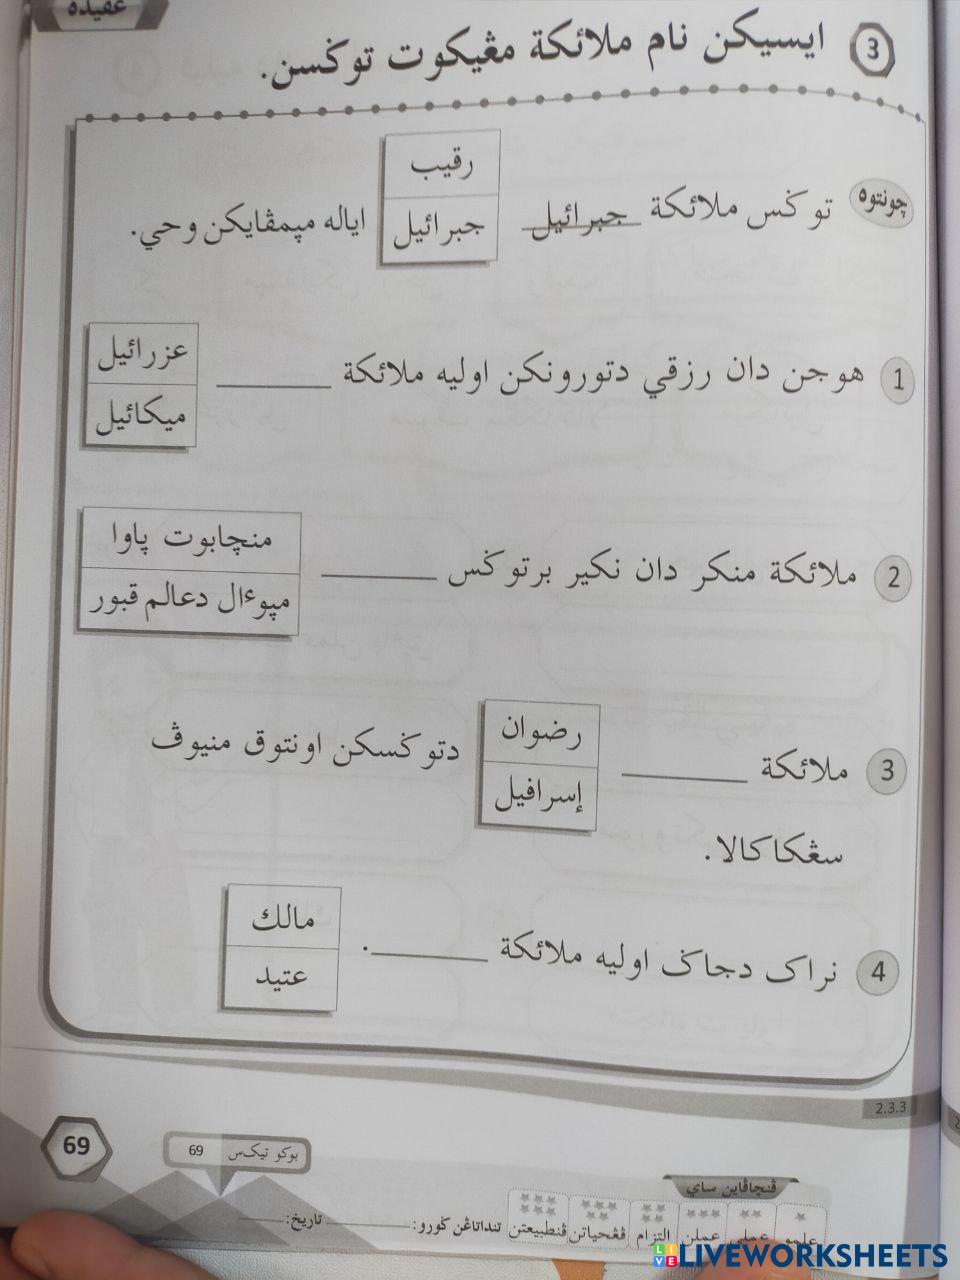 عقيده
3 ايسيكن نام ملائكة مڠيكوت توݢسن.
چونتوه توݢس ملائكة جبرائيل اياله مپمڤايكن وحي.
رقيب
جبرائيل
1 هوجن دان رزقي دتورونكن اوليه ملائكة ________
عزرائيل
ميكائيل
2 ملائكة منكر دان نكير برتوݢس ________
منچابوت ڽاوا
مپوءال دعالم قبور
3 ملائكة ________ دتوݢسكن اونتوق منيوڤ
رضوان
إسرافيل
سڠكاكالا.
4 نراک دجاݢ اوليه ملائكة ________.
مالك
عتيد
2.3.3
69
بوكو تيكس 69
ڤنچاڤاين ساي
علمو عملي عملن التزام ڤڠحياتن ڤنطبيعتن
تنداتاڠن ݢورو: ________ تاريخ: ________
LIVE LIVEWORKSHEETS